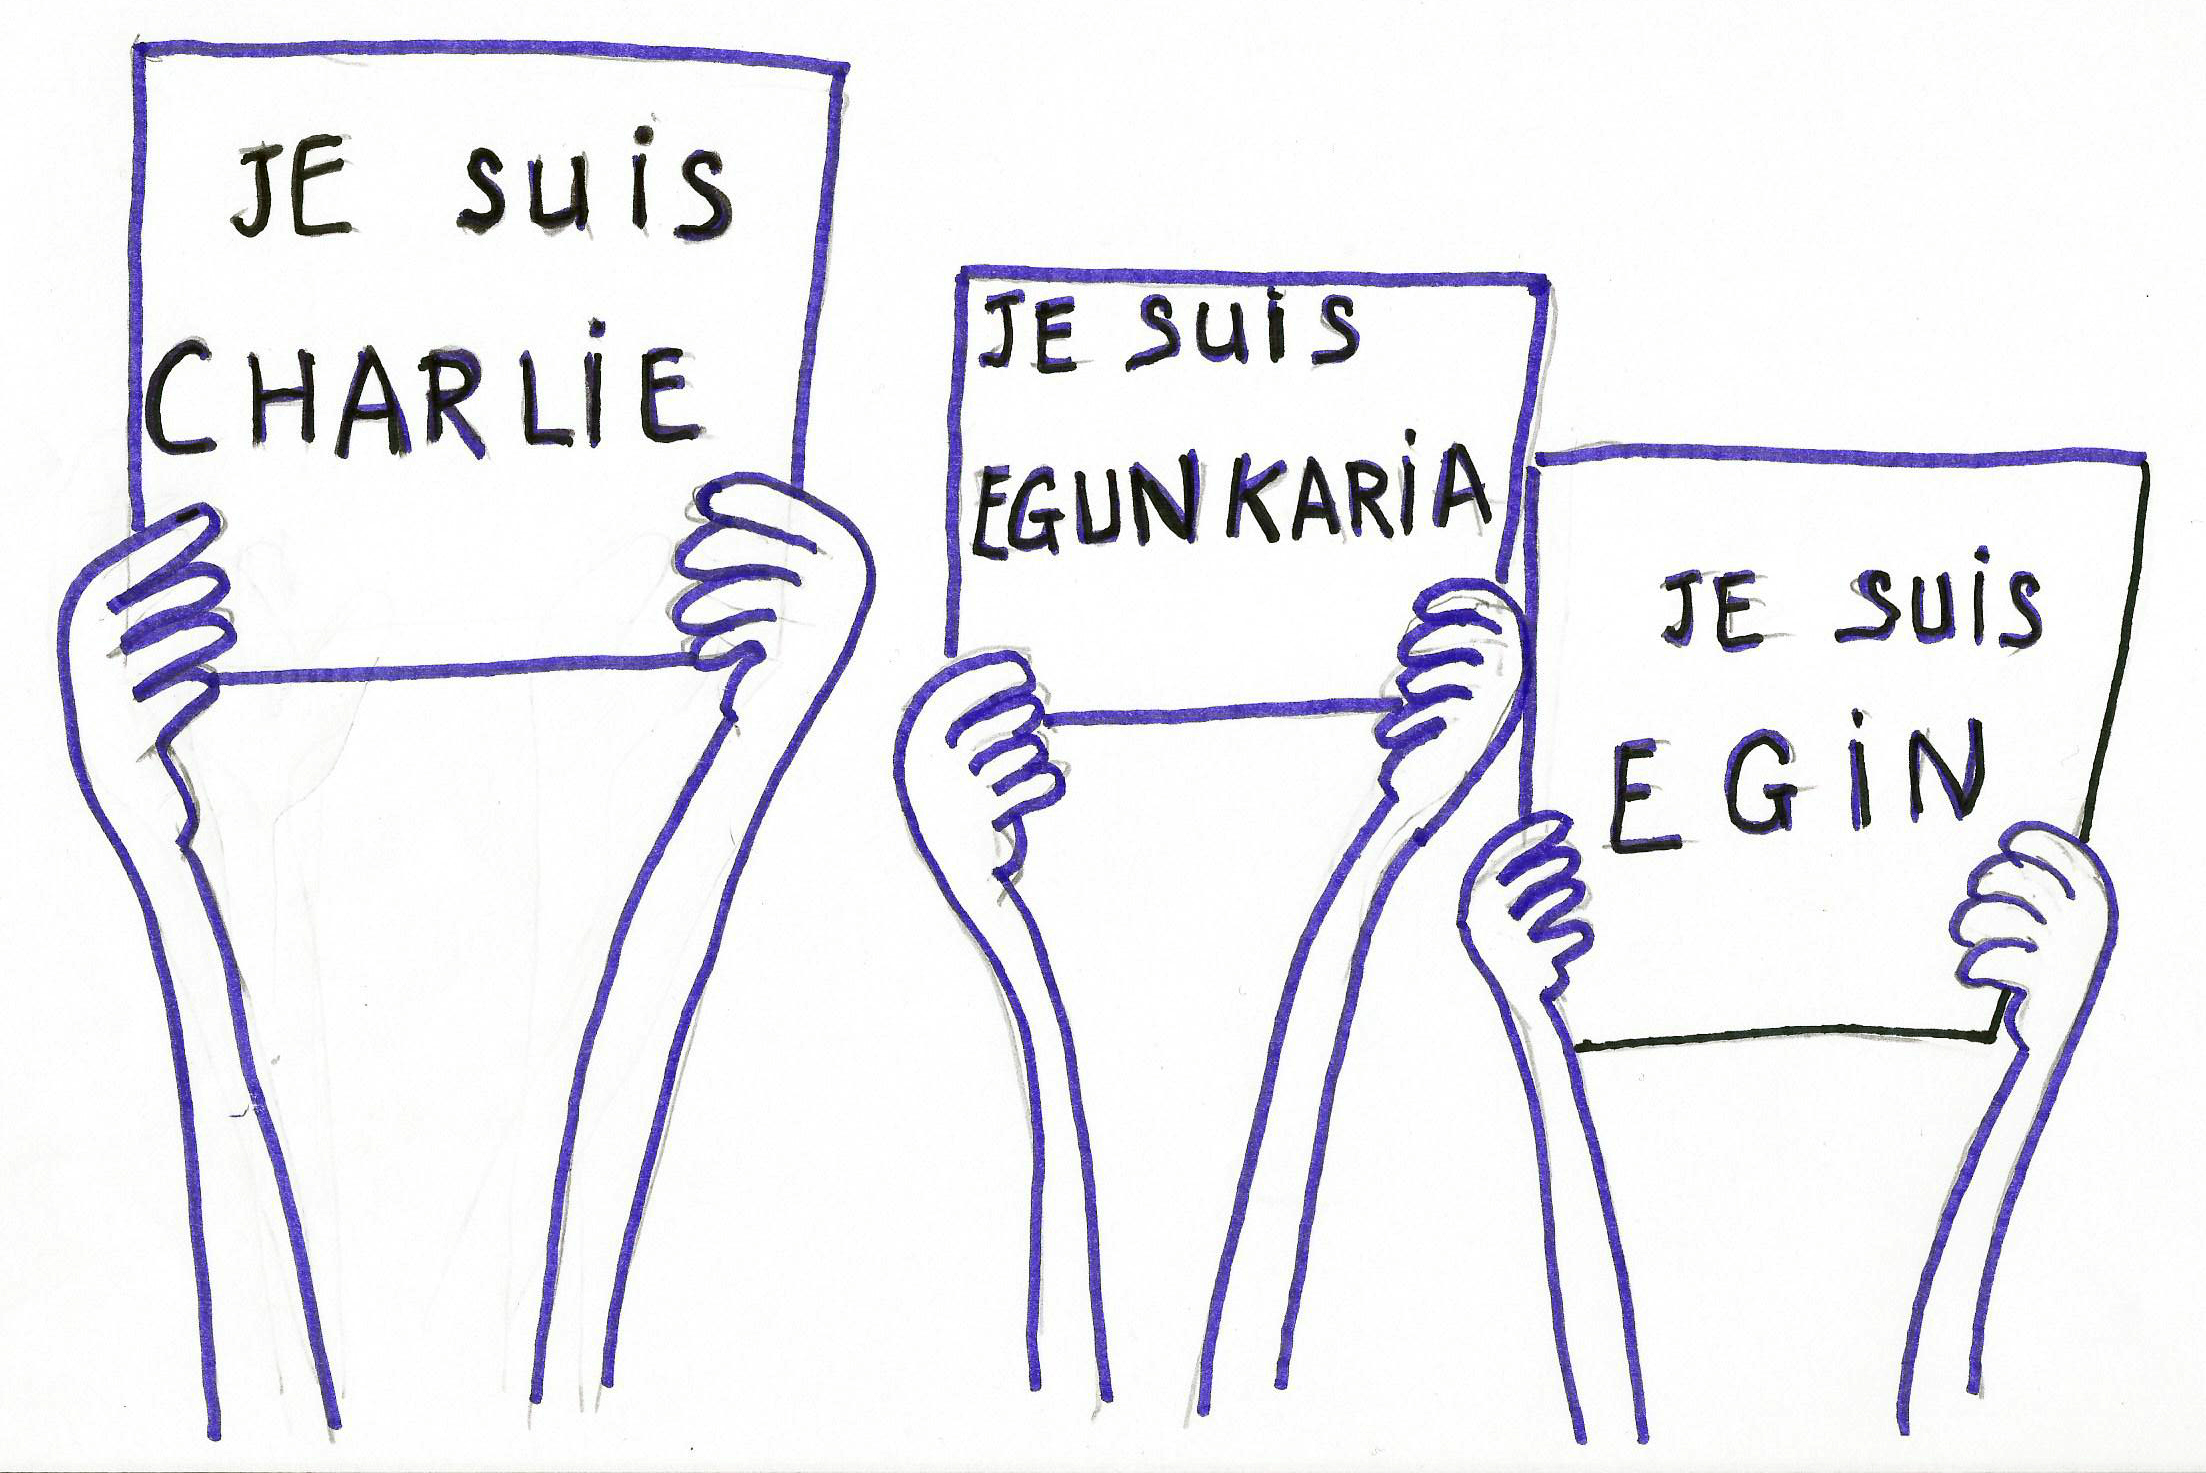 JE suis
CHARLiE
JE suis
EGUNKARiA
JE suis
EGiN